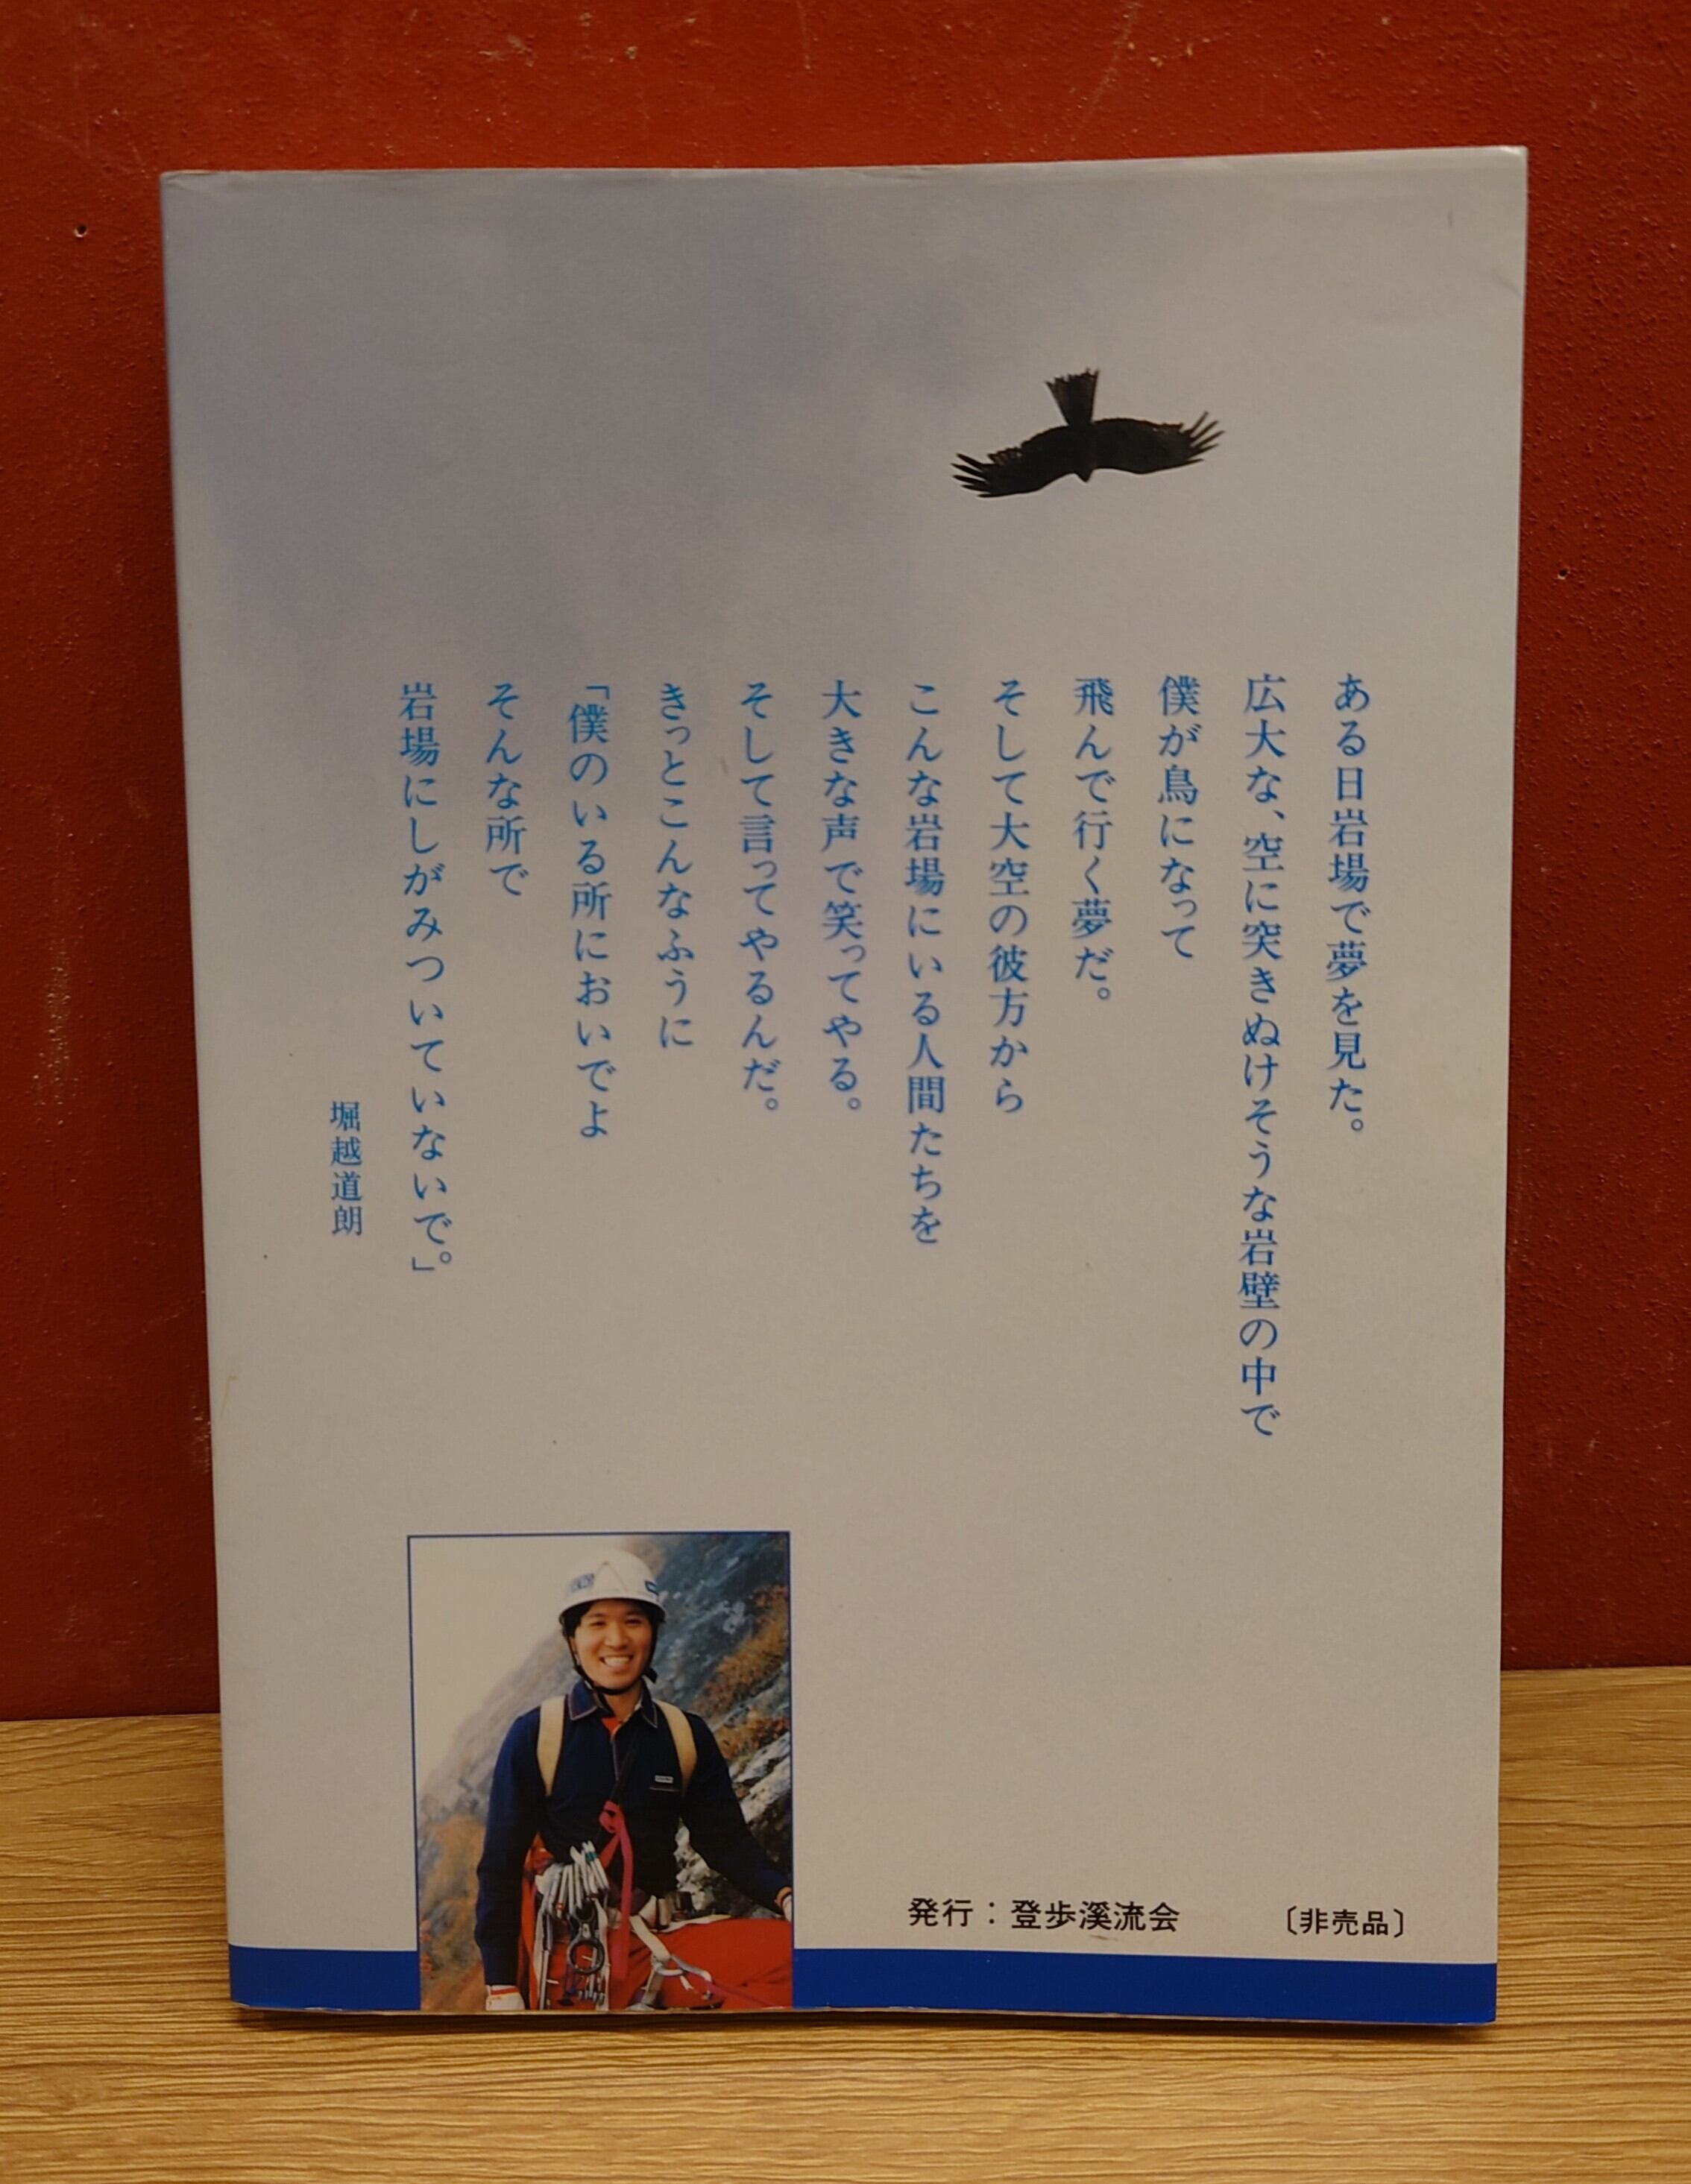 ある日岩場で夢を見た。
広大な、空に突きぬけそうな岩壁の中で
僕が鳥になって
飛んで行く夢だ。
そして大空の彼方から
こんな岩場にいる人間たちを
大きな声で笑ってやる。
そして言ってやるんだ。
きっとこんなふうに
「僕のいる所においでよ
そんな所で
岩場にしがみついていないで。」
堀越道朗
発行：登歩溪流会
〔非売品〕